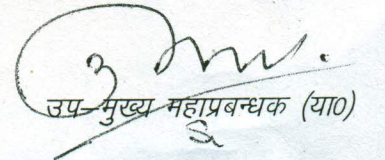 उप-मुख्य महाप्रबन्धक (या0)